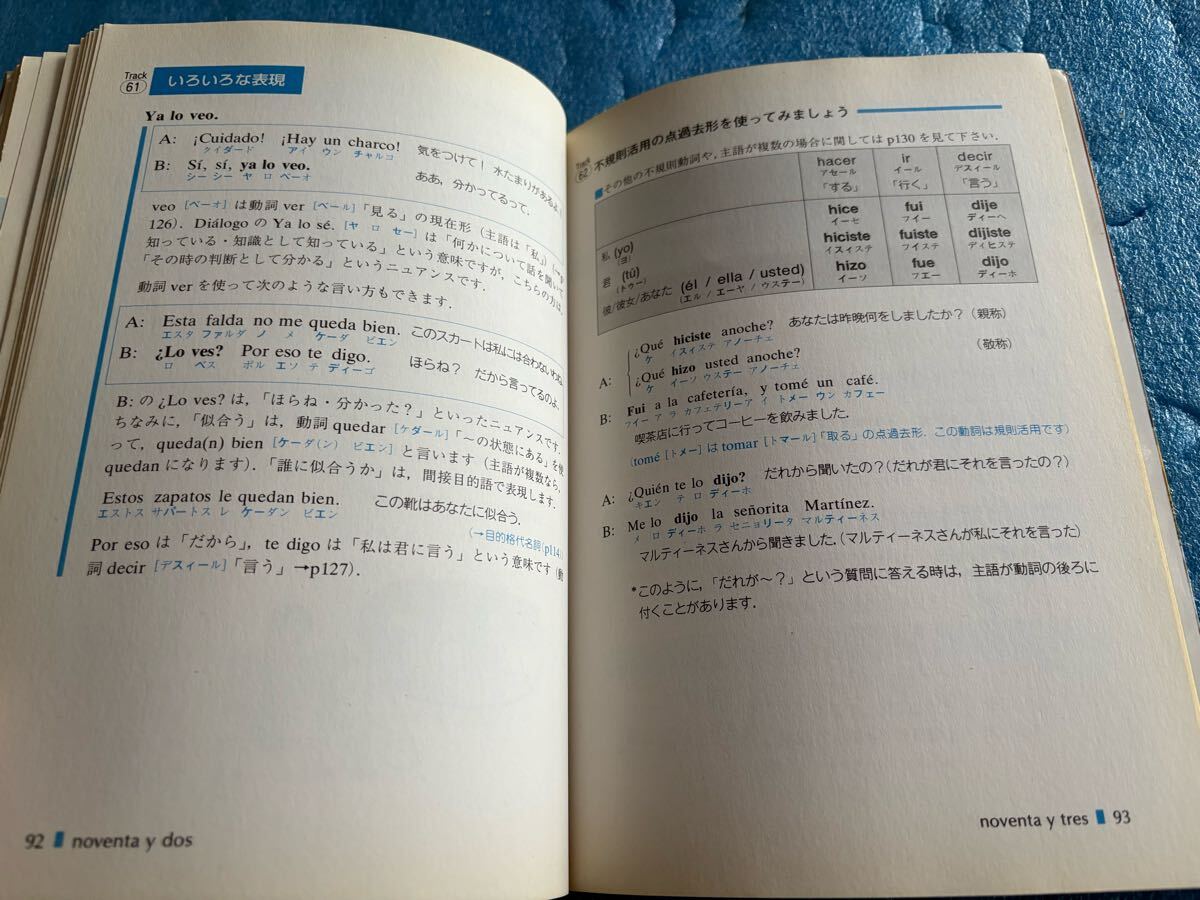 Track 61 いろいろな表現
Ya lo veo.
A: ¡Cuidado! ¡Hay un charco! 気をつけて! 水たまりがあるよ!
クイダード アイ ウン チャルコ
B: Sí, sí, ya lo veo. ああ,分かってるって.
シー シー ヤ ロ ベーオ
veo [ベーオ] は動詞 ver [ベール]「見る」の現在形(主語は「私」)→p
126). Diálogo の Ya lo sé. [ヤ ロ セー] は「何かについて話を聞いて
知っている・知識として知っている」という意味ですが,こちらの方は,
「その時の判断として分かる」というニュアンスです.
動詞 ver を使って次のような言い方もできます.
A: Esta falda no me queda bien. このスカートは私には合わないわね.
エスタ ファルダ ノ メ ケーダ ビエン
B: ¿Lo ves? Por eso te digo. ほらね? だから言ってるのよ.
ロ ベス ポル エソ テ ディーゴ
B: の ¿Lo ves? は,「ほらね・分かった?」といったニュアンスです.
ちなみに,「似合う」は,動詞 quedar [ケダール]「~の状態にある」を使
って, queda(n) bien [ケーダ(ン) ビエン] と言います(主語が複数なら,
quedan になります).「誰に似合うか」は,間接目的語で表現します.
Estos zapatos le quedan bien. この靴はあなたに似合う.
エストス サパートス レ ケーダン ビエン
(→目的格代名詞(p114))
Por eso は「だから」, te digo は「私は君に言う」という意味です(動
詞 decir [デスィール]「言う」→p127).
92 noventa y dos
Track 62 不規則活用の点過去形を使ってみましょう
■その他の不規則動詞や,主語が複数の場合に関しては p130 を見て下さい.
hacer ir decir
アセール イール デスィール
「する」 「行く」 「言う」
私 (yo) hice fui dije
(ヨ) イーセ フイー ディーヘ
君 (tú) hiciste fuiste dijiste
(トゥー) イスィステ フイステ ディヒステ
彼/彼女/あなた (él / ella / usted) hizo fue dijo
(エル / エーヤ / ウステー) イーソ フエー ディーホ
A: ¿Qué hiciste anoche? あなたは昨晩何をしましたか?(親称)
ケ イスィステ アノーチェ
¿Qué hizo usted anoche? (敬称)
ケ イーソ ウステー アノーチェ
B: Fui a la cafetería, y tomé un café.
フイー ア ラ カフェテリーア イ トメー ウン カフェー
喫茶店に行ってコーヒーを飲みました.
(tomé [トメー] は tomar [トマール]「取る」の点過去形.この動詞は規則活用です)
A: ¿Quién te lo dijo? だれから聞いたの?(だれが君にそれを言ったの?)
キエン テ ロ ディーホ
B: Me lo dijo la señorita Martínez.
メ ロ ディーホ ラ セニョリータ マルティーネス
マルティーネスさんから聞きました.(マルティーネスさんが私にそれを言った)
*このように,「だれが~?」という質問に答える時は,主語が動詞の後ろに
付くことがあります.
noventa y tres 93